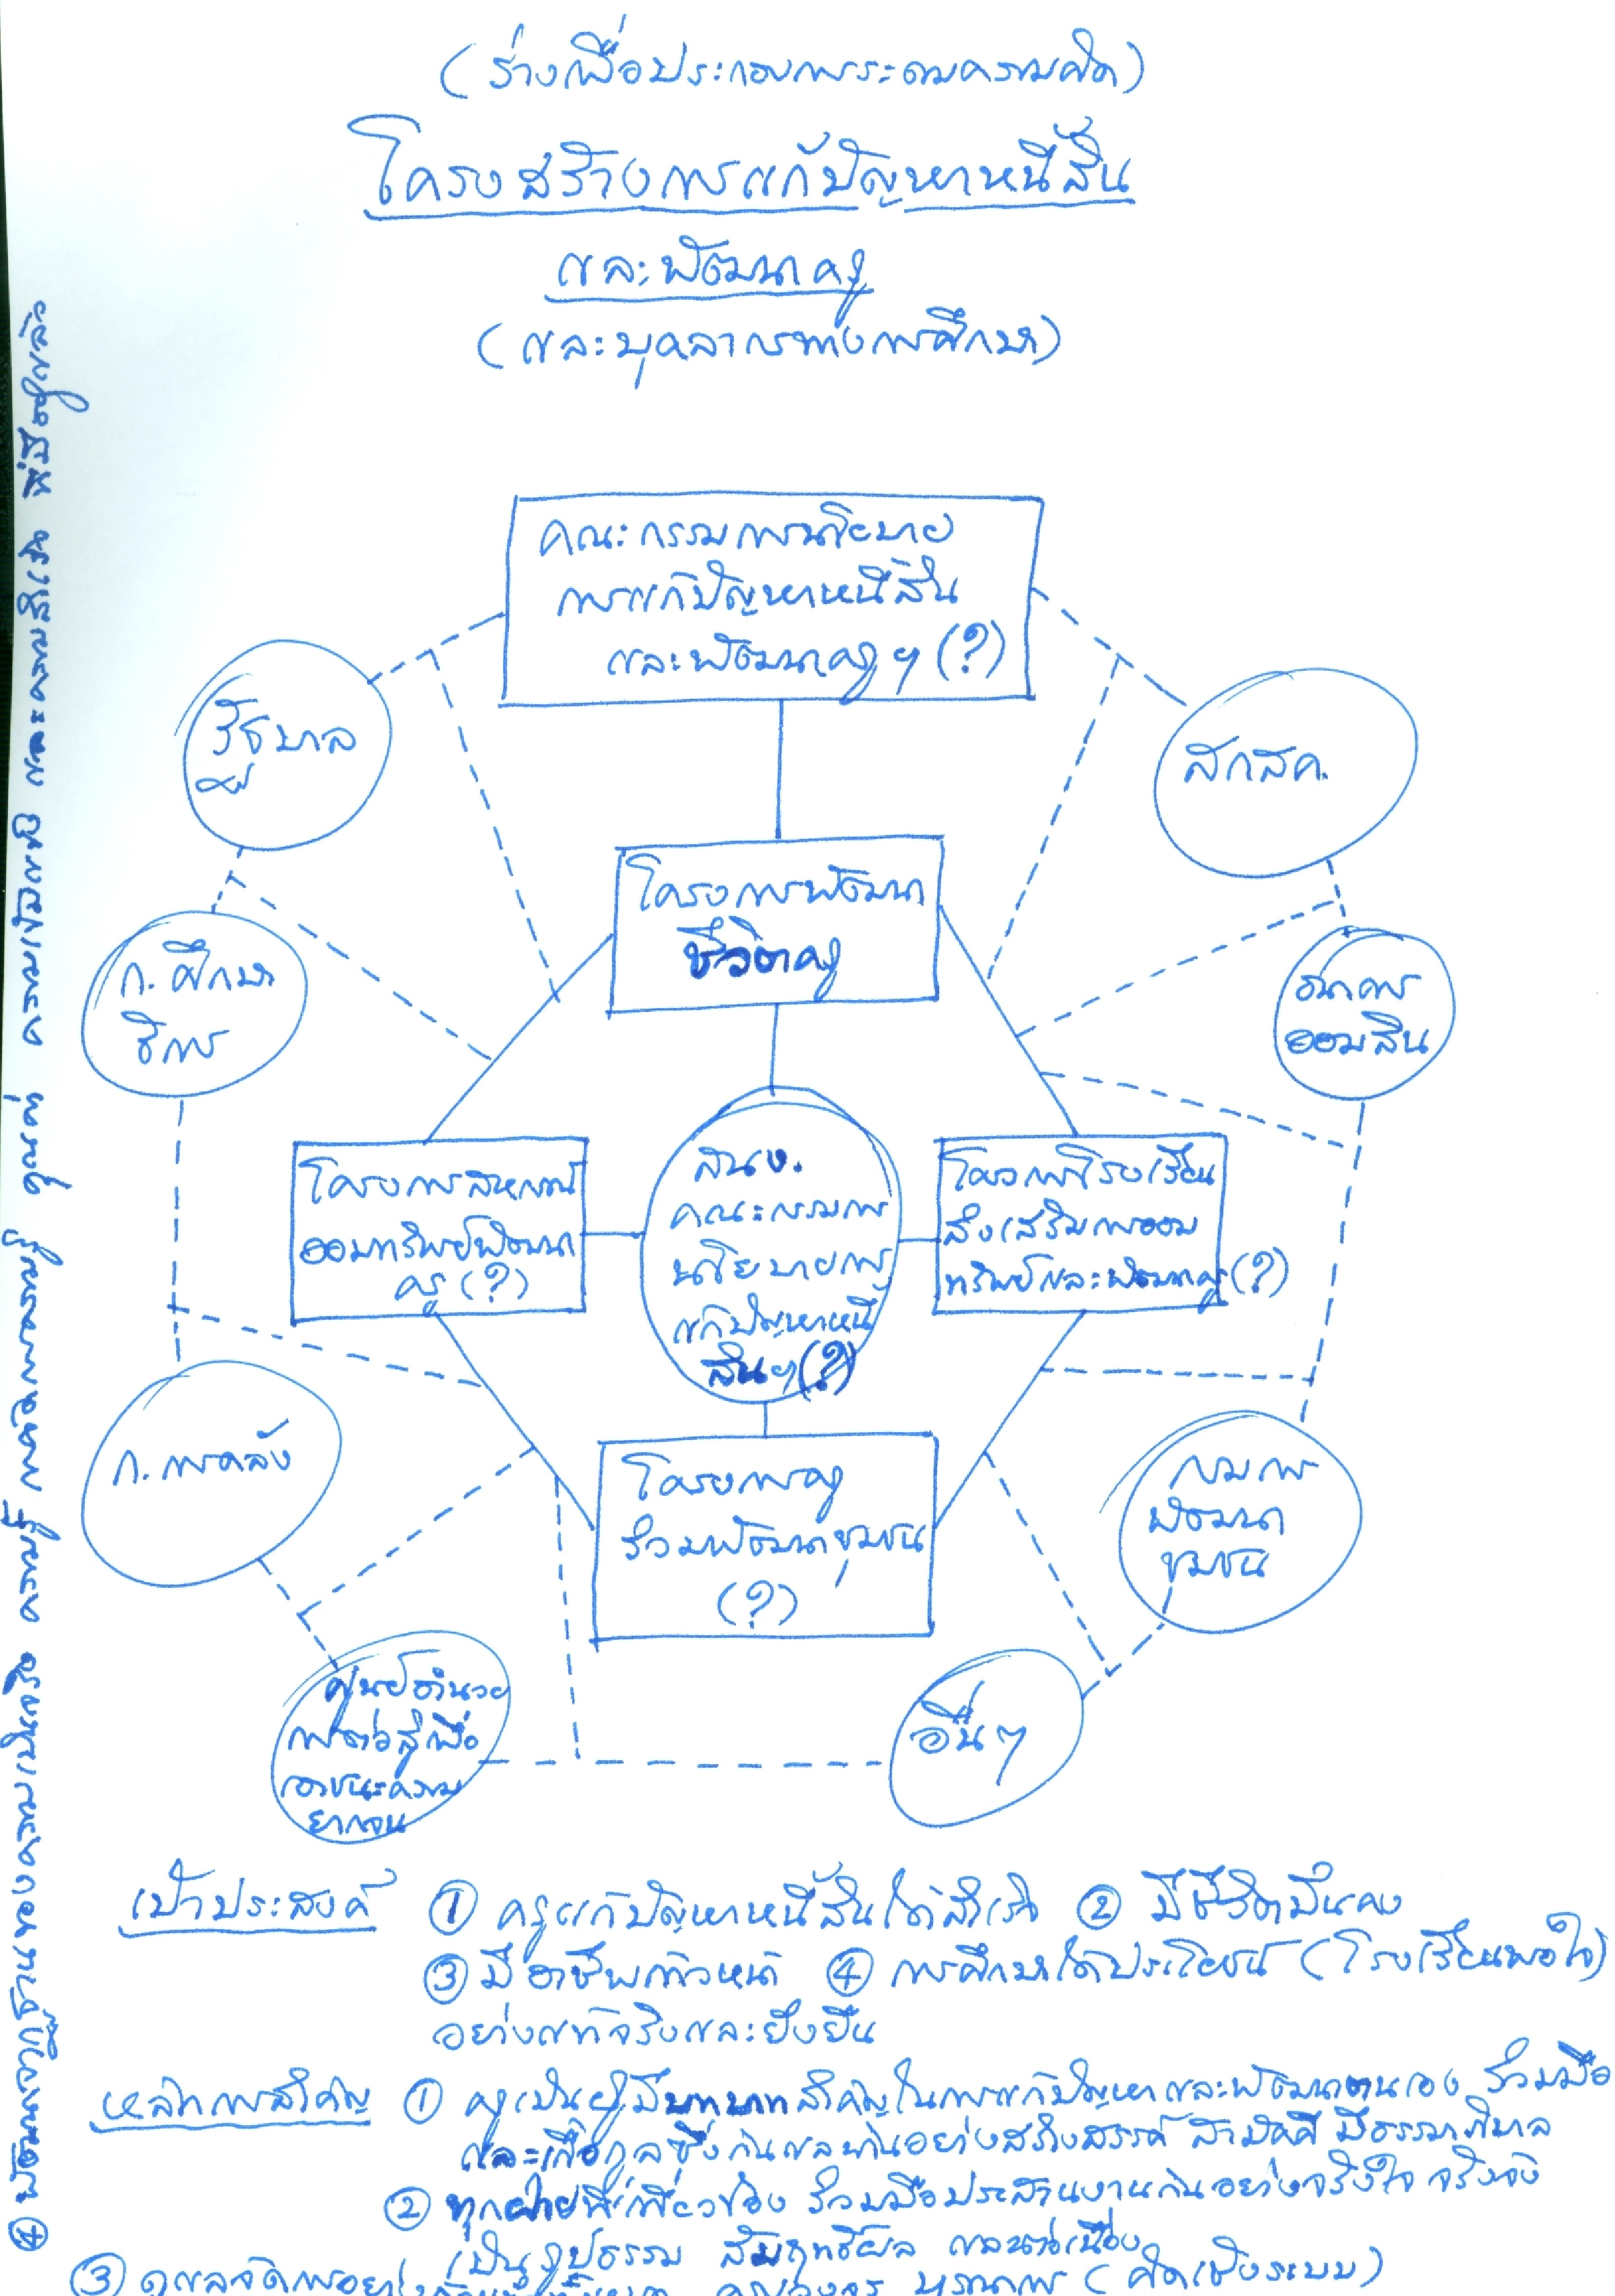 (ร่างเพื่อประกอบการระดมความคิด)
โครงสร้างการแก้ปัญหาหนี้สิน
และพัฒนาครู
(และบุคลากรทางการศึกษา)
คณะกรรมการนโยบาย
การแก้ปัญหาหนี้สิน
และพัฒนาครูฯ (?)
รัฐบาล
สกสค.
โครงการพัฒนา
ชีวิตครู
ก. ศึกษา
ธิการ
ธนาคาร
ออมสิน
โครงการสหกรณ์
ออมทรัพย์พัฒนา
ครู (?)
สนง.
คณะกรรมการ
นโยบายการ
แก้ปัญหาหนี้
สินฯ (?)
โครงการโรงเรียน
ส่งเสริมการออม
ทรัพย์และพัฒนาครู (?)
ก. การคลัง
โครงการครู
ร่วมพัฒนาชุมชน
(?)
กรมการ
พัฒนา
ชุมชน
ศูนย์อำนวย
การต่อสู้เพื่อ
เอาชนะความ
ยากจน
อื่นๆ
เป้าประสงค์ ① ครูแก้ปัญหาหนี้สินได้สำเร็จ ② มีชีวิตมั่นคง
③ มีอาชีพก้าวหน้า ④ การศึกษาได้ประโยชน์ (โรงเรียนพอใจ)
อย่างแท้จริงและยั่งยืน
หลักการสำคัญ ① ครูเป็นผู้มีบทบาทสำคัญในการแก้ปัญหาและพัฒนาตนเอง ร่วมมือ
และเกื้อกูลซึ่งกันและกันอย่างสร้างสรรค์ สามัคคี มีธรรมาภิบาล
② ทุกฝ่ายที่เกี่ยวข้อง ร่วมมือประสานงานกันอย่างจริงใจ จริงจัง
เป็นรูปธรรม สัมฤทธิ์ผล และต่อเนื่อง
③ ดูแลจัดการอย่าง ครบวงจร บูรณาการ (คิดเชิงระบบ)
④ พัฒนาจากฐานของความเป็นจริง ความรู้ การจัดการความรู้ คุณค่า ความเข้มแข็ง และความสำเร็จ ที่มีอยู่แล้ว